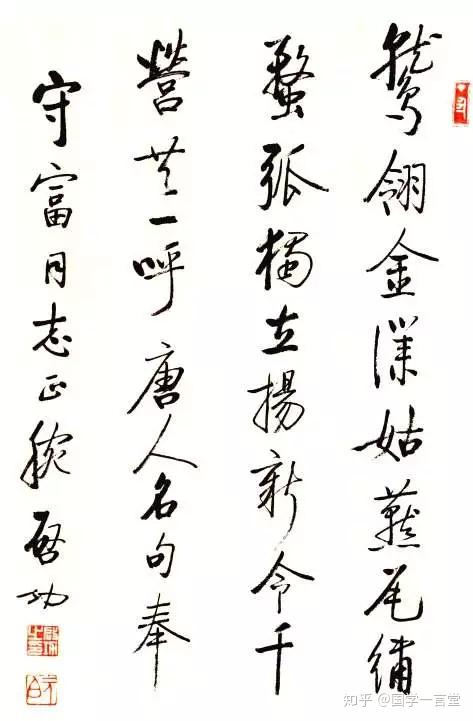 鷲翎金僕姑燕尾繡
蝥弧獨立揚新令千
營共一呼唐人名句奉
守富同志正腕啓功
知乎 @国学一言堂